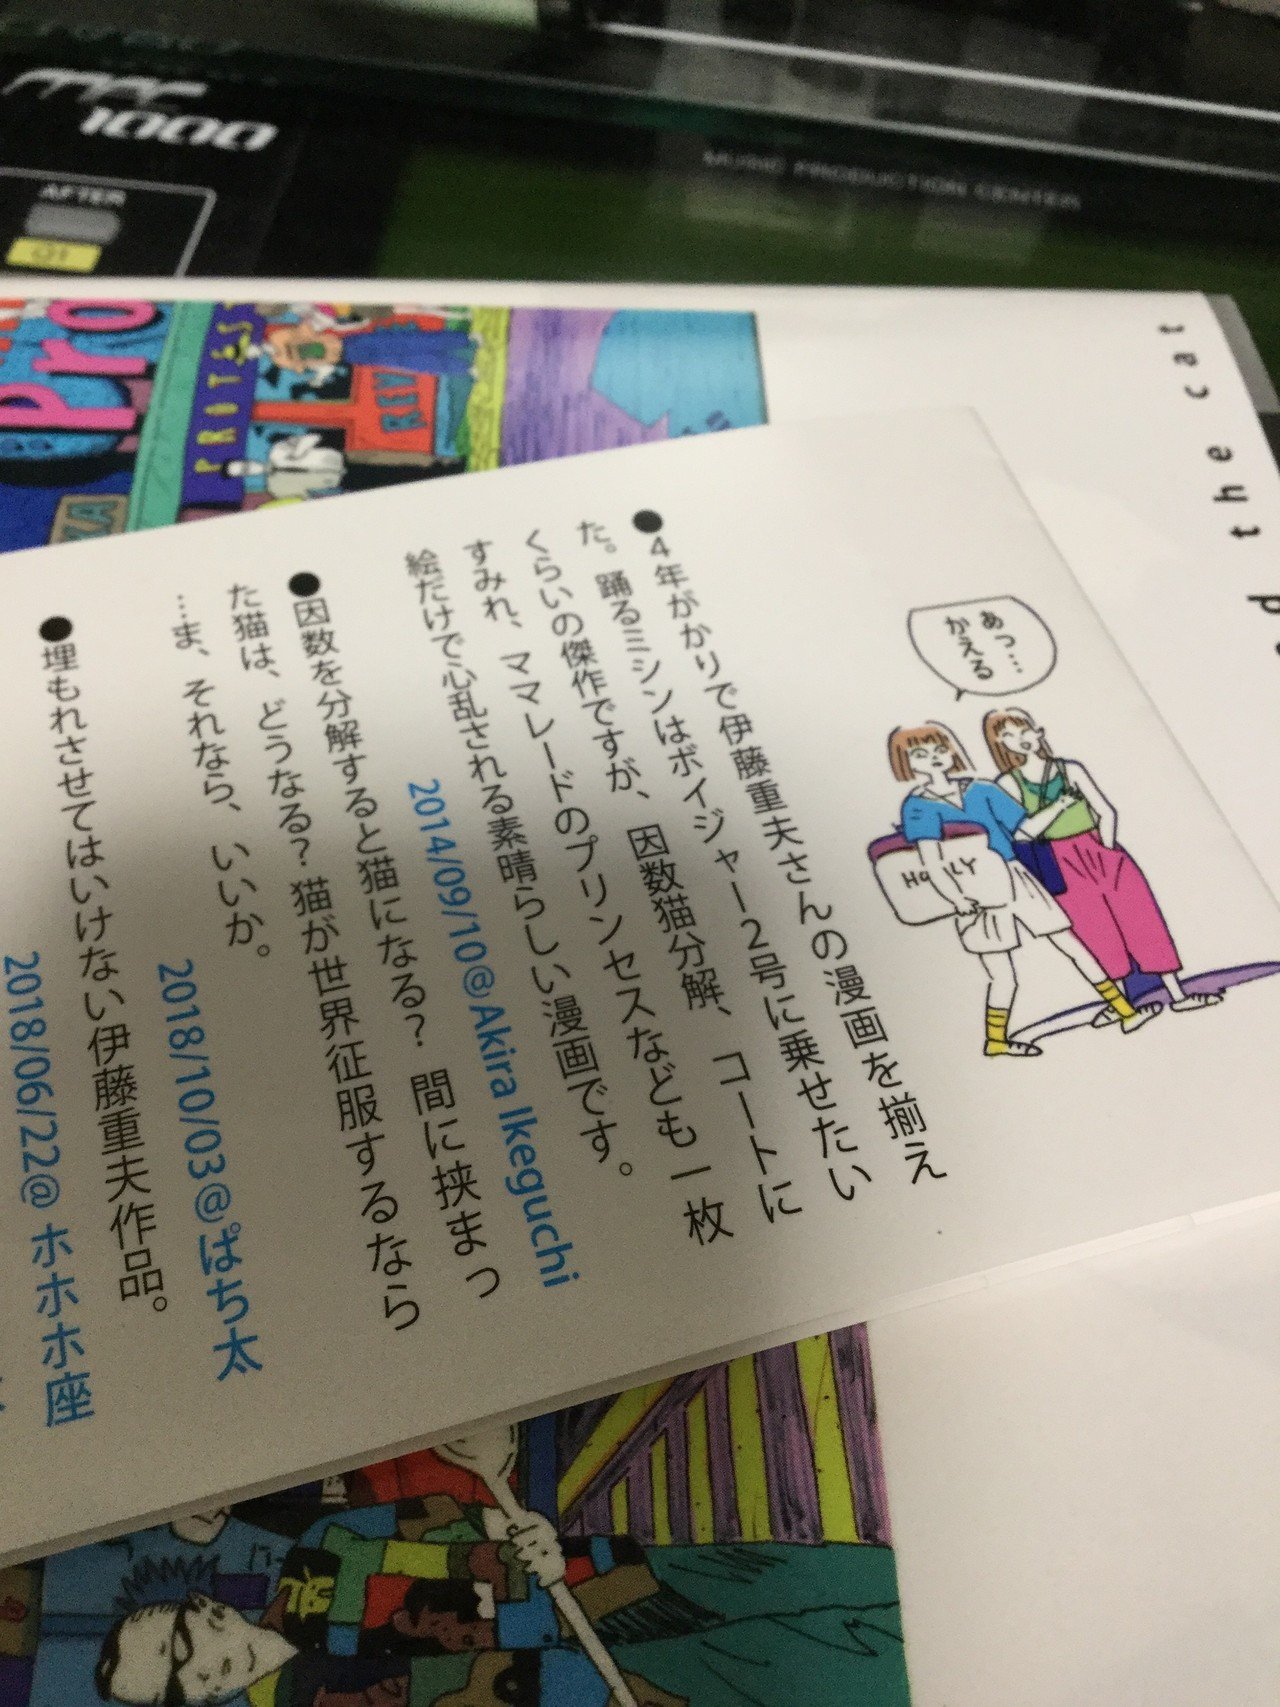 MPC
1000
MUSIC PRODUCTION CENTER
AFTER
Q1
the cat
Pro
PROTEST
REV
KA
あっ…
かえる
HOLY
●4年がかりで伊藤重夫さんの漫画を揃え
た。踊るミシンはボイジャー2号に乗せたい
くらいの傑作ですが、因数猫分解、コートに
すみれ、ママレードのプリンセスなども一枚
絵だけで心乱される素晴らしい漫画です。
2014/09/10@Akira Ikeguchi
●因数を分解すると猫になる? 間に挟まっ
た猫は、どうなる?猫が世界征服するなら
…ま、それなら、いいか。
2018/10/03@ぱち太
●埋もれさせてはいけない伊藤重夫作品。
2018/06/22@ホホホ座